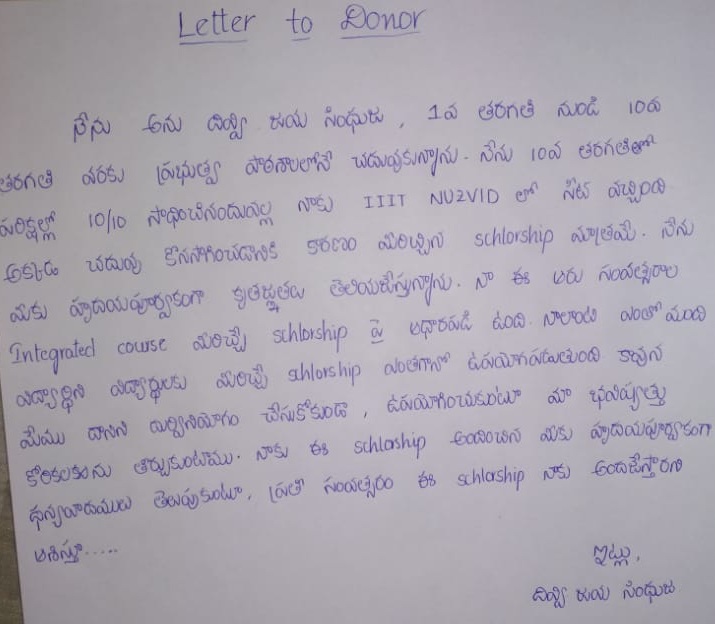 Letter to Donor
నేను అను దివ్వి జయ సింధుజ, 1వ తరగతి నుండి 10వ
తరగతి వరకు ప్రభుత్వ పాఠశాలలోనే చదువుకున్నాను. నేను 10వ తరగతిలో
పరీక్షల్లో 10/10 సాధించినందువల్ల నాకు IIIT NUZVID లో సీట్ వచ్చింది
అక్కడ చదువు కొనసాగించడానికి కారణం మీరిచ్చిన schlorship మాత్రమే. నేను
మీకు హృదయపూర్వకంగా కృతజ్ఞతలు తెలియజేస్తున్నాను. నా ఈ ఆరు సంవత్సరాల
Integrated course మీరిచ్చే schlorship పై ఆధారపడి ఉంది. నాలాంటి ఎంతో మంది
విద్యార్థిని విద్యార్థులకు మీరిచ్చే schlorship ఎంతగానో ఉపయోగపడుతుంది కావున
మేము దానిని దుర్వినియోగం చేసుకోకుండా, ఉపయోగించుకుంటూ మా భవిష్యత్తు
కోరికలకును తీర్చుకుంటాము. నాకు ఈ schlorship అందించిన మీకు హృదయపూర్వకంగా
ధన్యవాదములు తెలుపుకుంటూ, ప్రతి సంవత్సరం ఈ schlorship నాకు అందజేస్తారని
ఆశిస్తూ.....
ఇట్లు,
దివ్వి జయ సింధుజ